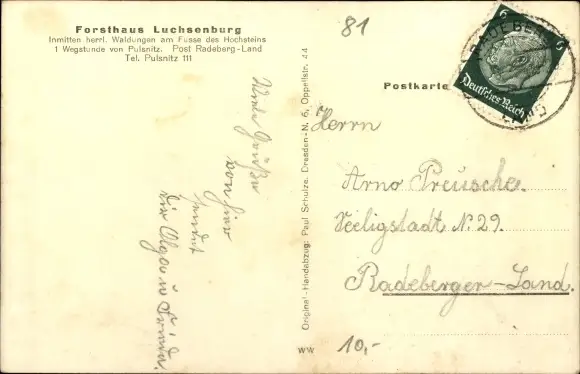 Forsthaus Luchsenburg
Inmitten herrl. Waldungen am Fusse des Hochsteins
1 Wegstunde von Pulsnitz. Post Radeberg-Land
Tel. Pulsnitz 111
81
Postkarte
6
6
Deutsches Reich
RADEBE
Grüße
von hier
sendet
die Olga u Frieda.
Original-Handabzug: Paul Schulze, Dresden-N. 6, Oppellstr. 44
WW
Herrn
Arno Preusche.
Seeligstadt N. 29.
Radeberger-Land.
10,-